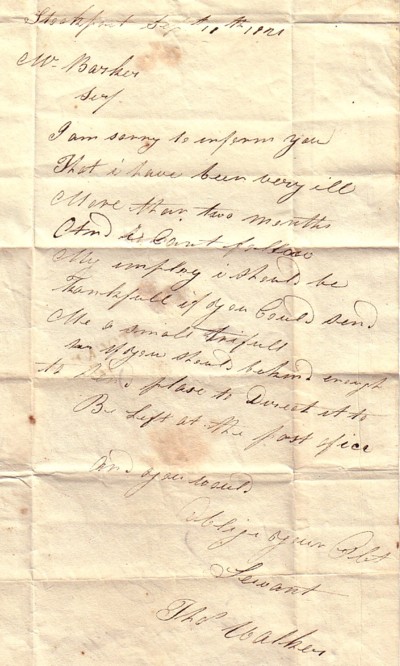 Stockport Sep th 10th 1821
Mr Barker
Ser/
I am sorry to inform you
That i have been very ill
More than two months
And i Cant follow
My imploy i should be
Thankfull if you Could send
Me a small trifull
if you should behind enough
to Send plase to Direct it to
Be Left at the post ofice
And you would
Oblige your Obt
Servant
Thos Walker